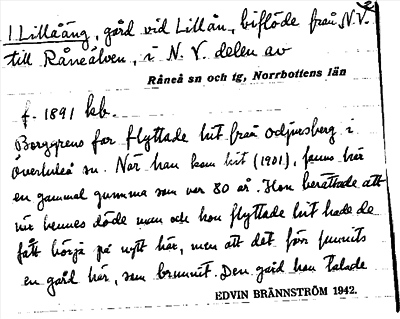 1 Lillåäng, gård vid Lillån, biflöde från N.V.
till Råneälven, i N.V. delen av
Råneå sn och tg, Norrbottens län
f. 1891 hb.
Berggrens far flyttade hit frånÖdjusberg i
Överluleå sn. När han kom hit (1901), fanns här
en gammal gumma som var 80 år. Hon berättade att
när hennes döde man och hon flyttade hit hade de
fått börja på nytt här, men att det förr funnits
en gård här, som brunnit. Den gård han talade
EDVIN BRÄNNSTRÖM 1942.